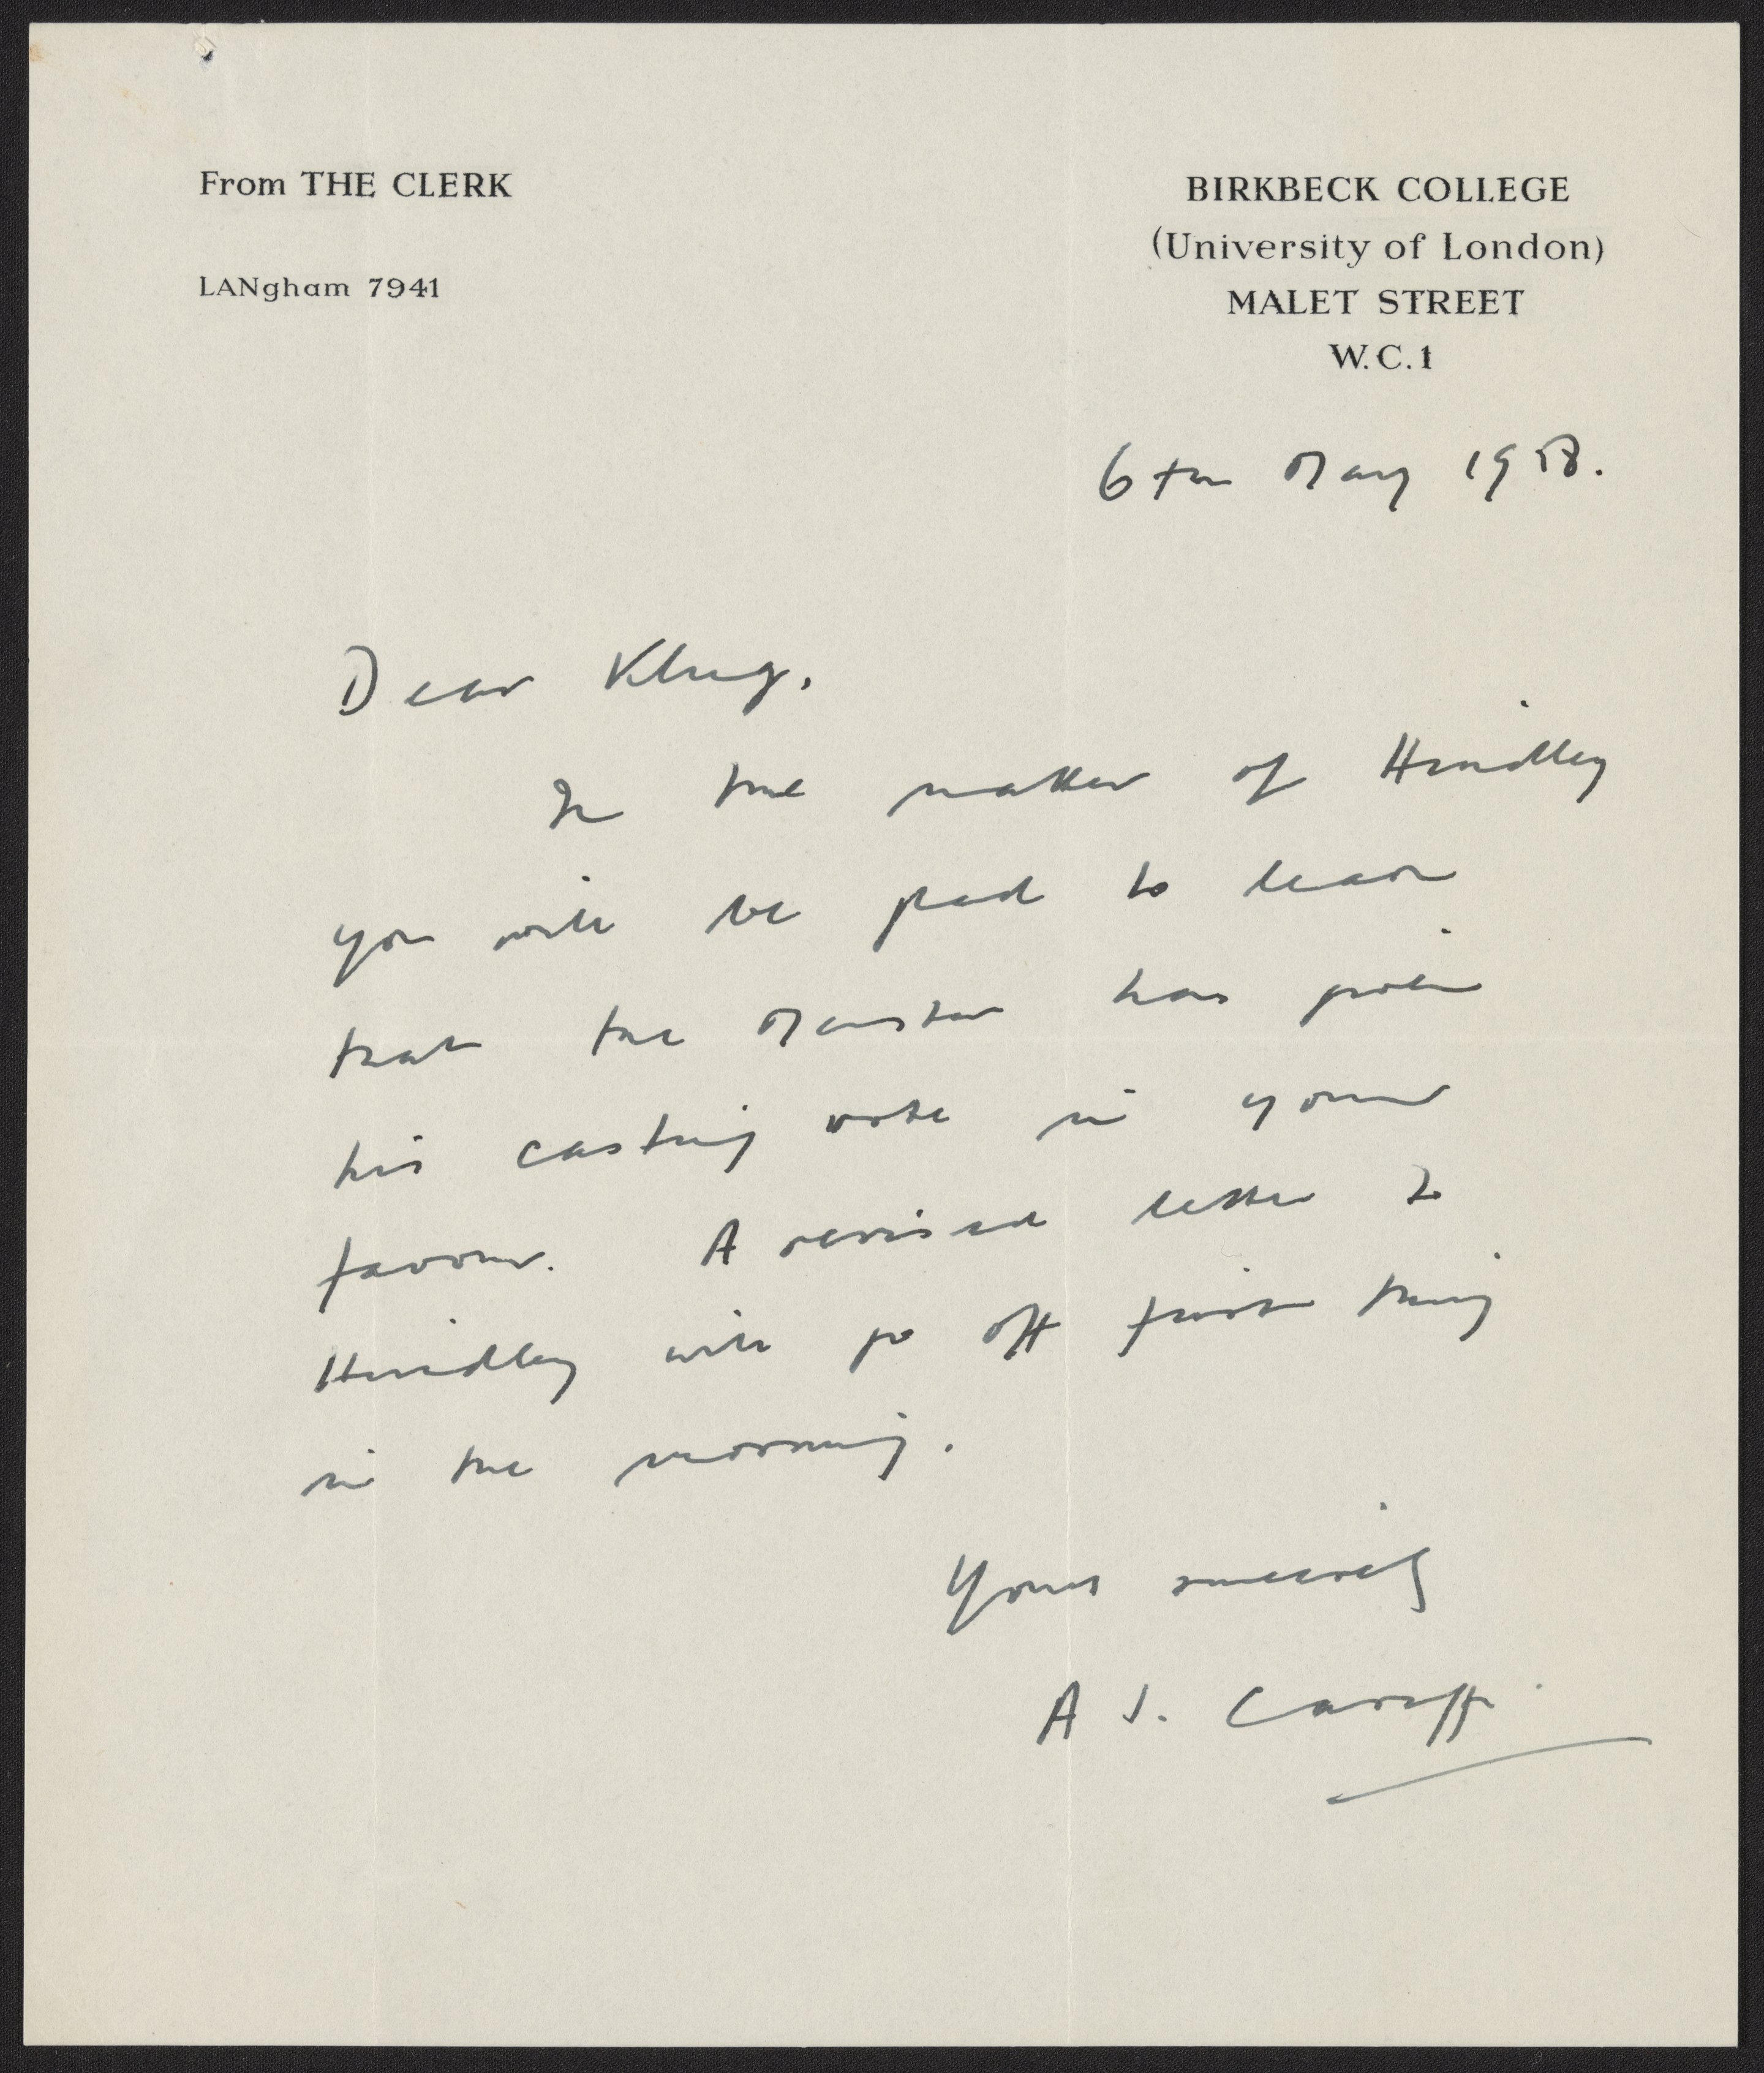 From THE CLERK
LANgham 7941
BIRKBECK COLLEGE
(University of London)
MALET STREET
W.C.1
6th May 1958.
Dear Klug,
In the matter of Hindley
you will be glad to learn
that the Master has given
his casting vote in your
favour. A revised letter to
Hindley will go off first thing
in the morning.
Yours sincerely
A J. Caraffi.